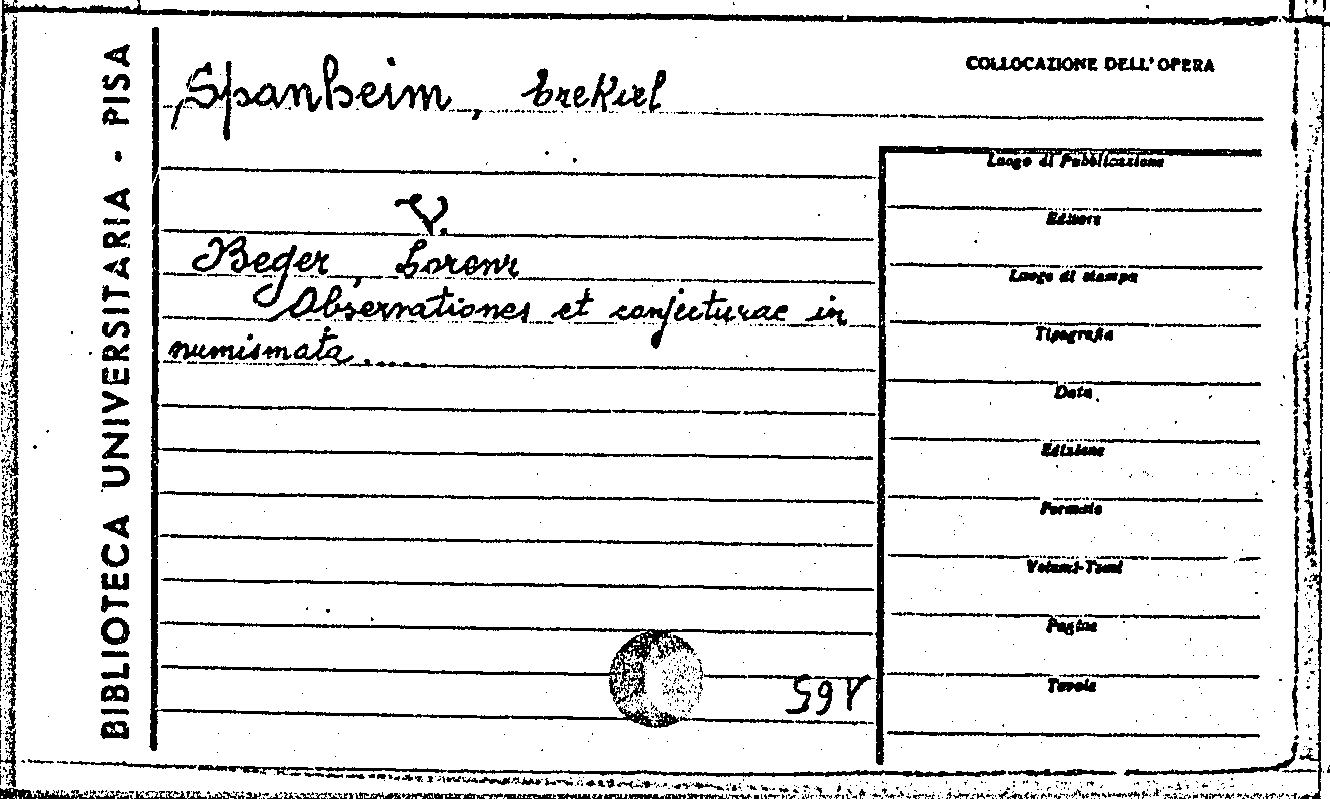 BIBLIOTECA UNIVERSITARIA - PISA
Spanheim, Ezekiel
COLLOCAZIONE DELL'OPERA
V.
Beger, Lorenz
Observationes et conjecturae in
numismata......
Luogo di Pubblicazione
Editore
Luogo di stampa
Tipografia
Data
Edizione
Formato
Volumi-Tomi
Pagine
Tavole